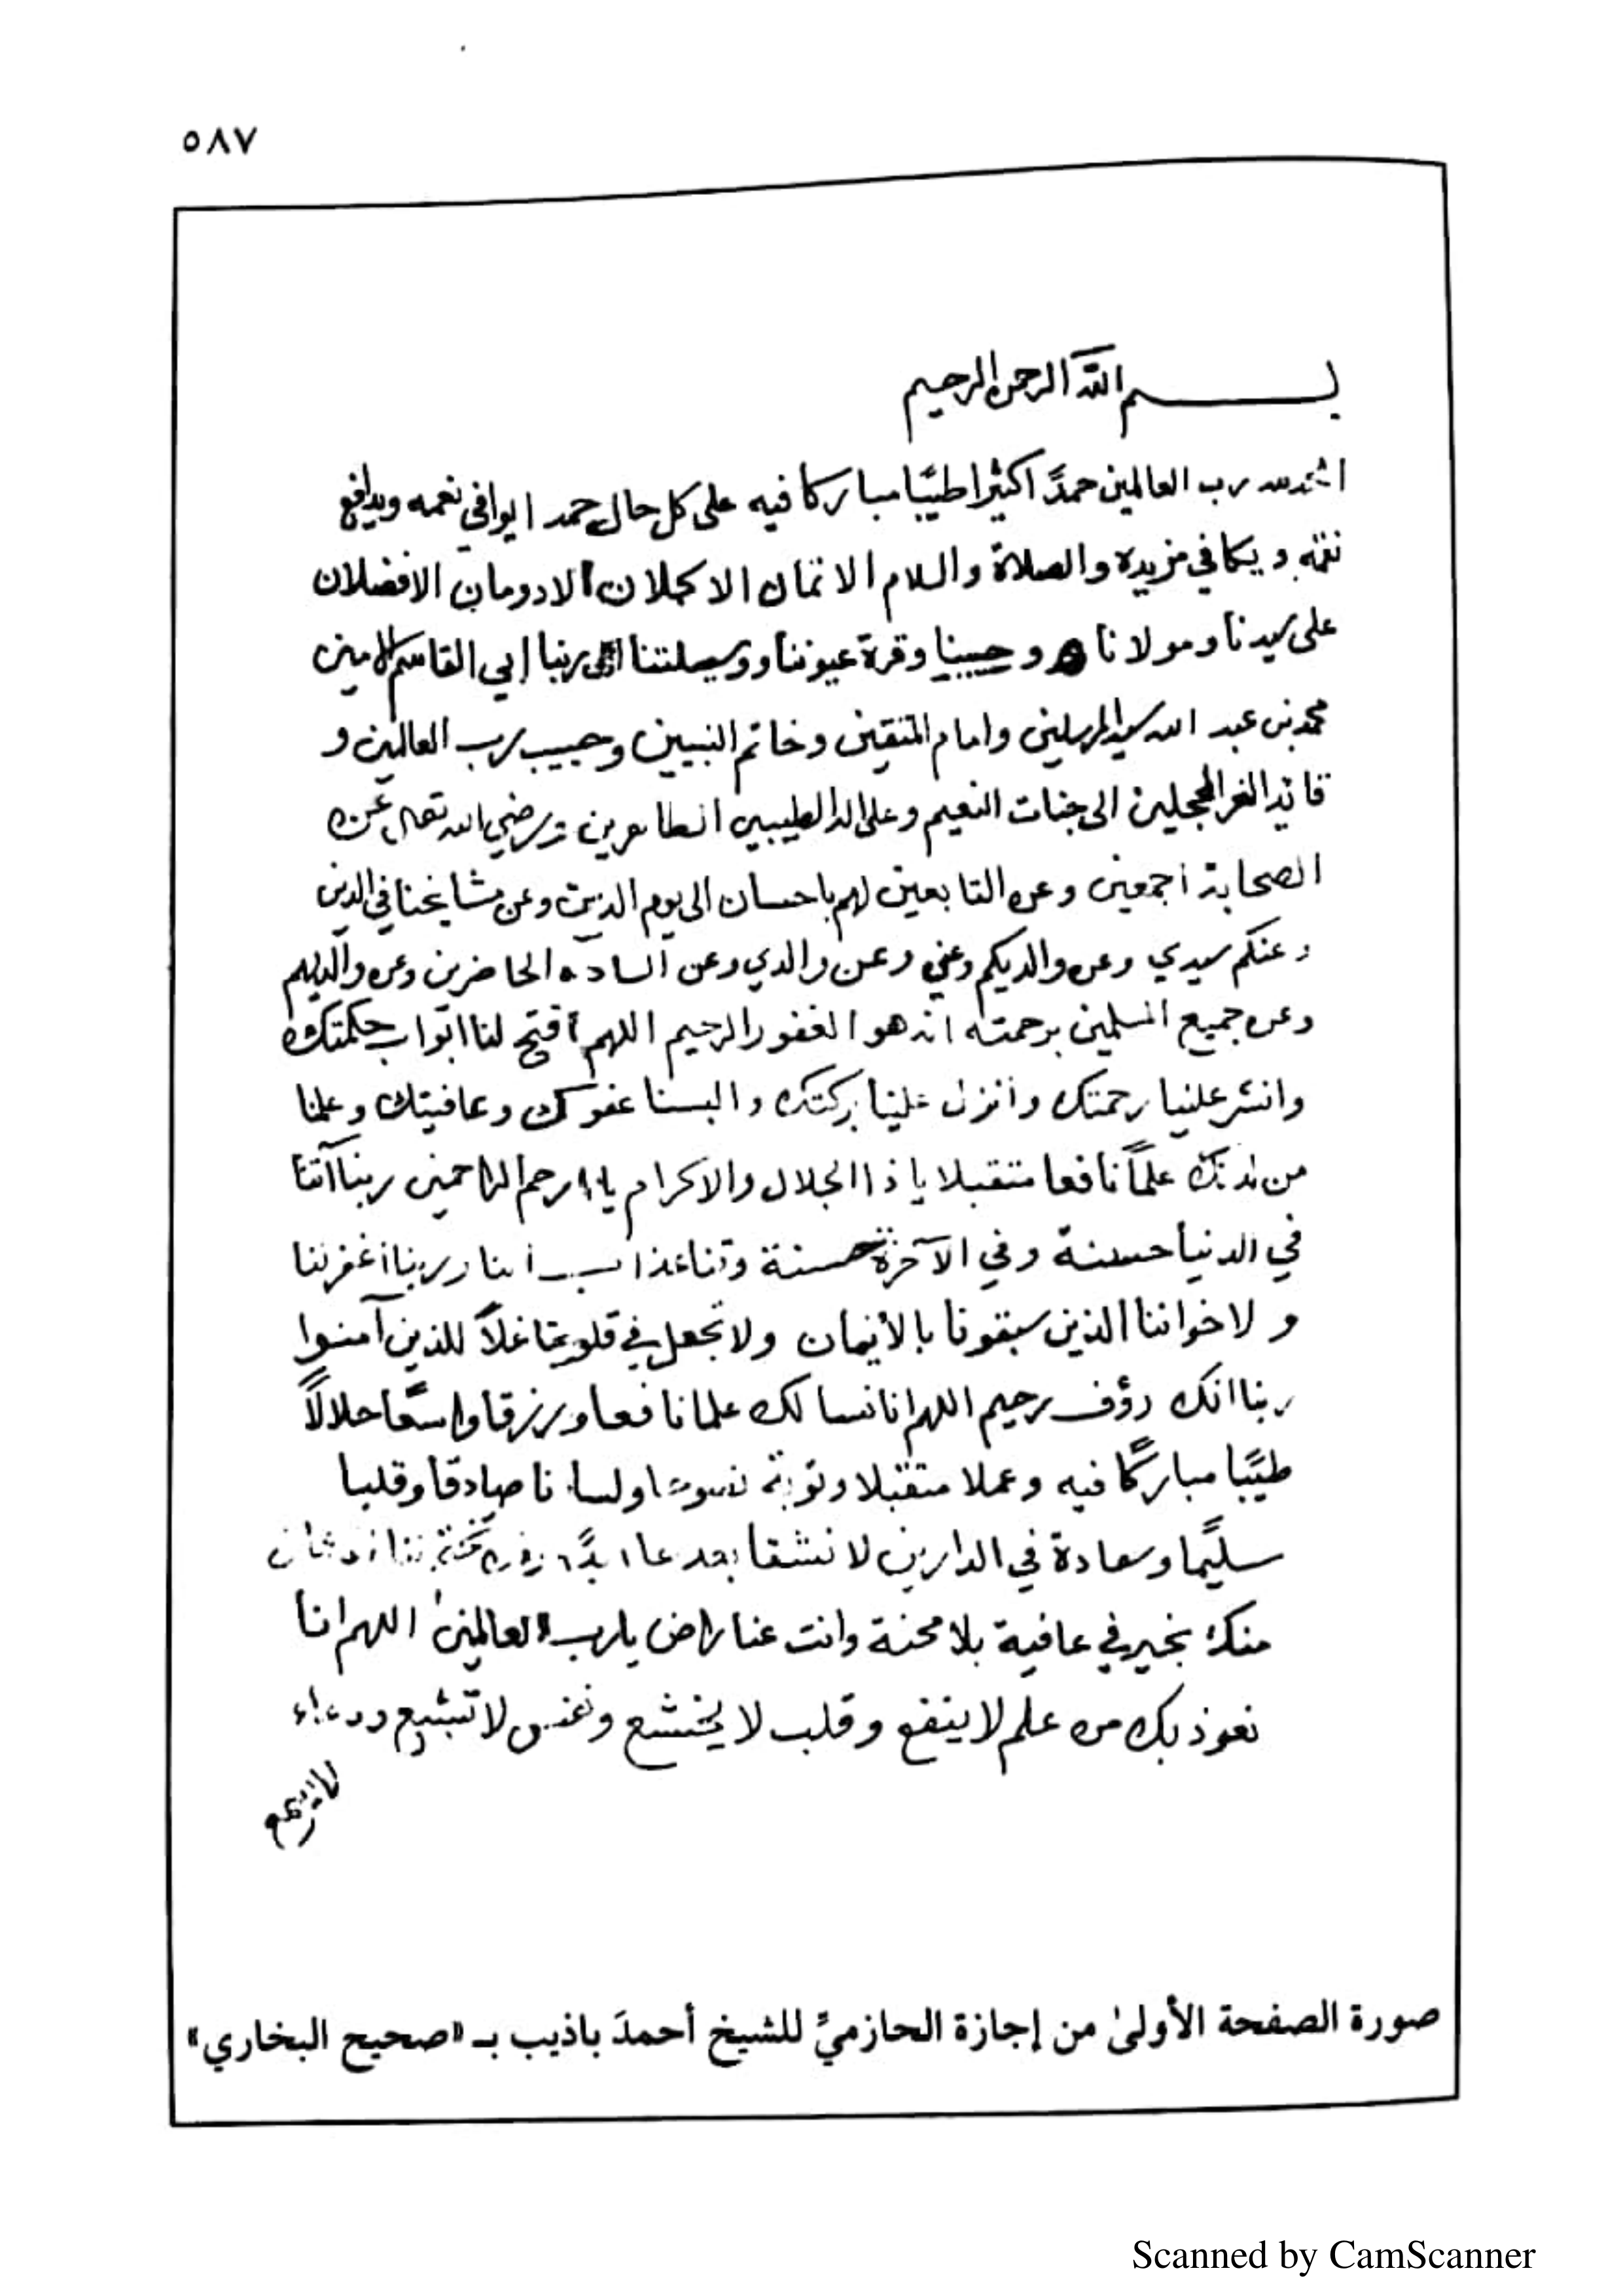 ٥٨٧
بسم الله الرحمن الرحيم
الحمد لله رب العالمين حمدًا كثيرا طيبًا مباركا فيه على كل حال حمد ايوافي نعمه ويدافع
نقمه ويكافي مزيده والصلاة والسلام الاتمان الاكملان الادومان الافضلان
على سيدنا ومولانا وحبيبنا وقرة عيوننا ووسيلتنا الى ربنا ابي القاسم الامين
محمد بن عبد الله سيد المرسلين وامام المتقين وخاتم النبيين وحبيب رب العالمين و
قائد الغر المحجلين الى جنات النعيم وعلى اله الطيبين الطاهرين ورضي الله تعالى عن
الصحابة اجمعين وعن التابعين لهم باحسان الى يوم الدين وعن مشايخنا في الدين
وعنكم سيدي وعن والديكم وعني وعن والدي وعن السادة الحاضرين وعن والديهم
وعن جميع المسلمين برحمته انه هو الغفور الرحيم اللهم افتح لنا ابواب حكمتك
وانشر علينا رحمتك وانزل علينا بركتك والبسنا عفوك وعافيتك وعلمنا
من لدنك علمًا نافعا متقبلا يا ذا الجلال والاكرام يا ارحم الراحمين ربنا آتنا
في الدنيا حسنة وفي الآخرة حسنة وقنا عذاب النار ربنا اغفر لنا
ولاخواننا الذين سبقونا بالايمان ولا تجعل في قلوبنا غلاً للذين آمنوا
ربنا انك رؤف رحيم اللهم انا نسالك علما نافعا ورزقا واسعًا حلالاً
طيبًا مباركًا فيه وعملا متقبلا وتوبة نصوحا ولسانا صادقا وقلبا
سليمًا وسعادة في الدارين لا نشقا بعدها ابدًا
منك بخير في عافية بلا محنة وانت عنا راض يا رب العالمين اللهم انا
نعوذ بك من علم لا ينفع وقلب لا يخشع ونفس لا تشبع ودعاء
لا يسمع
صورة الصفحة الأولىٰ من إجازة الحازميِّ للشيخ أحمدَ باذيب بـ «صحيح البخاري»
Scanned by CamScanner